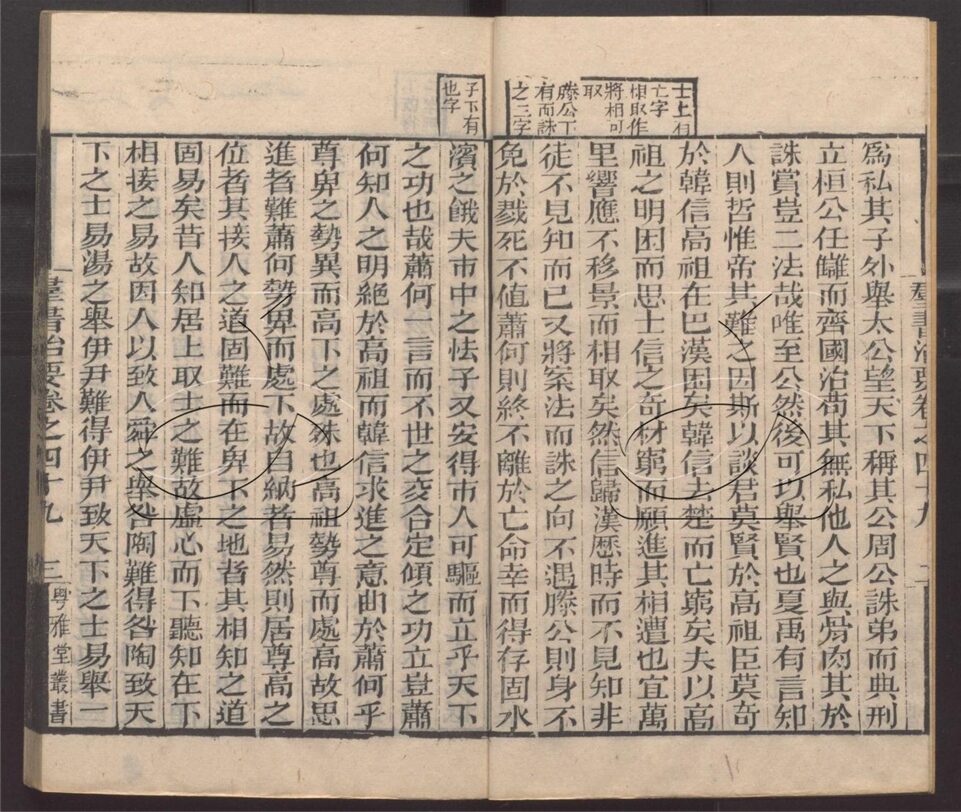 士上有
亡字
相取作
將相可
取
滕公下
有而誅
之三字
爲私其子外舉太公望天下稱其公周公誅弟而典刑
立桓公任讎而齊國治苟其無私他人之與骨肉其於
誅賞豈二法哉唯至公然後可以舉賢也夏禹有言知
人則哲惟帝其難之因斯以談君莫賢於高祖臣莫奇
於韓信高祖在巴漢困矣韓信去楚而亡窮矣夫以高
祖之明困而思士信之奇材窮而願進其相遭也宜萬
里響應不移景而相取矣然信歸漢歷時而不見知非
徒不見知而已又將案法而誅之向不遇滕公則身不
免於戮死不值蕭何則終不離於亡命幸而得存固水
子下有
也字
濱之餓夫市中之怯子又安得市人可驅而立乎天下
之功也哉蕭何一言而不世之交合定傾之功立豈蕭
何知人之明絕於高祖而韓信求進之意曲於蕭何乎
尊卑之勢異而高下之處殊也高祖勢尊而處高故思
進者難蕭何勢卑而處下故自納者易然則居尊高之
位者其接人之道固難而在卑下之地者其相知之道
固易矣昔人知居上取士之難故虛心而下聽知在下
相接之易故因人以致人舜之舉咎陶難得咎陶致天
下之士易湯之舉伊尹難得伊尹致天下之士易舉一
羣書治要卷之四十九 三 粵雅堂叢書